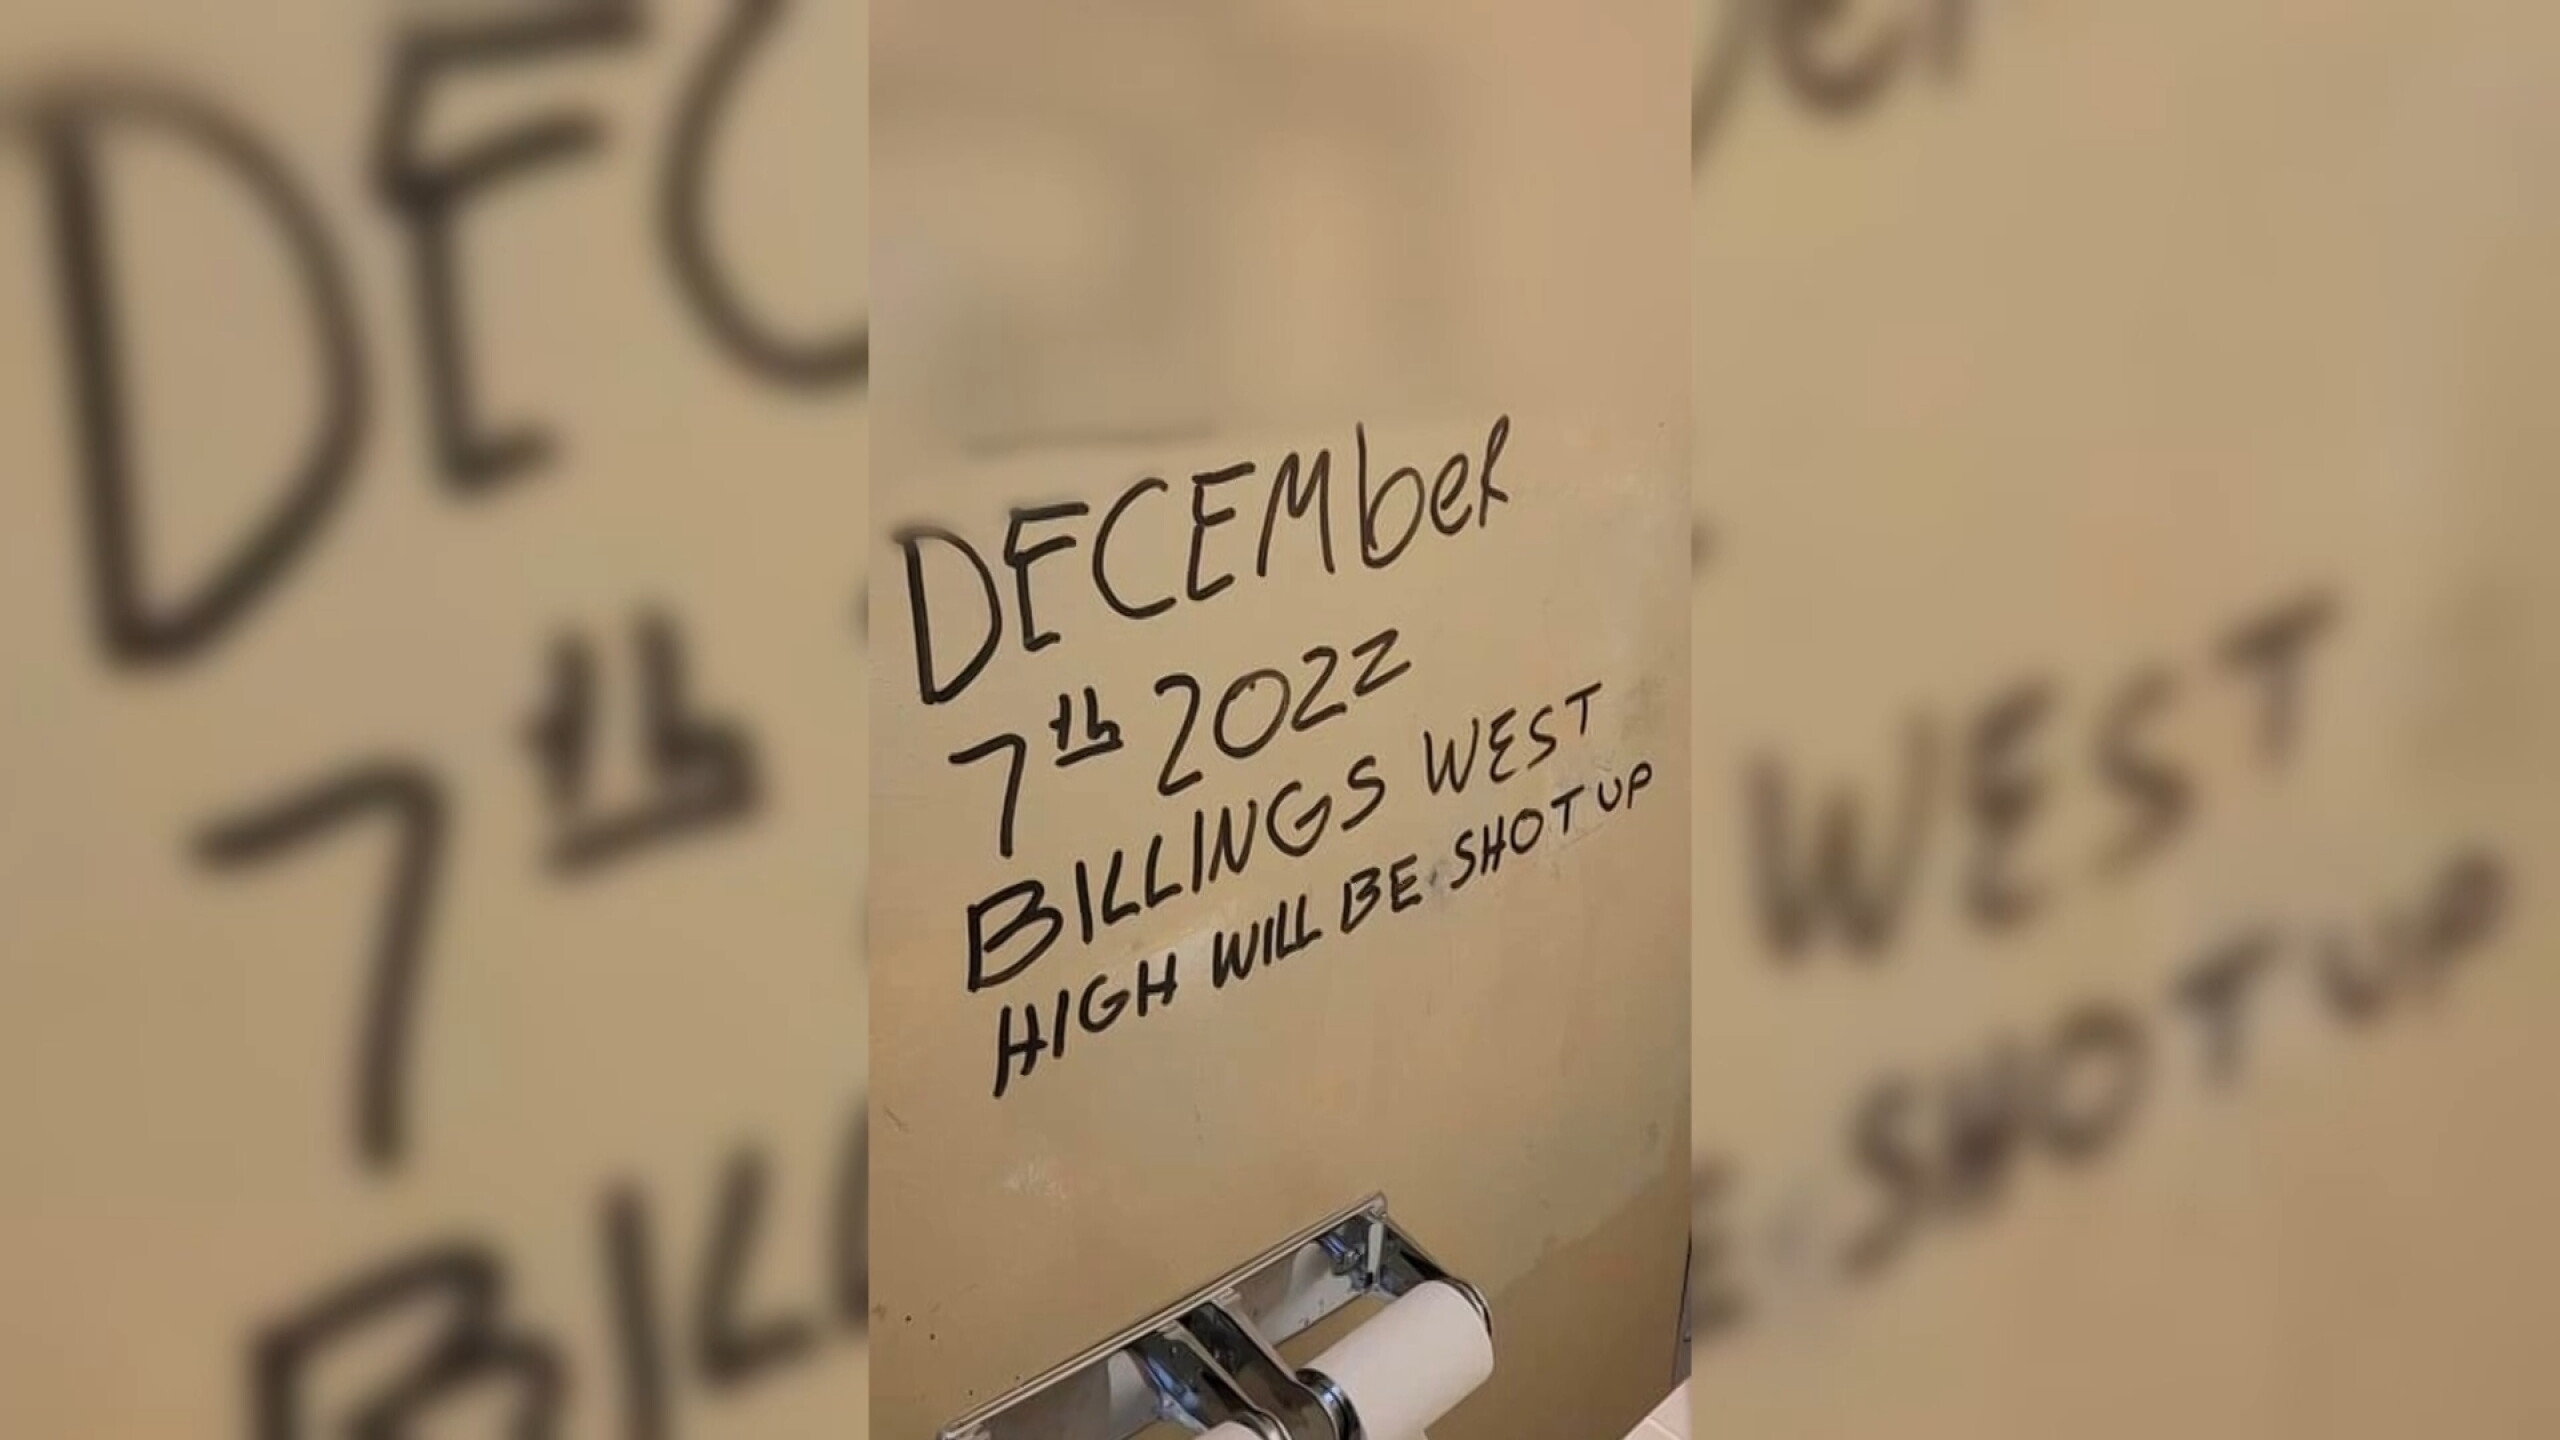 DECEMber
7th 2022
BILLINGS WEST
HIGH WILL BE SHOT UP